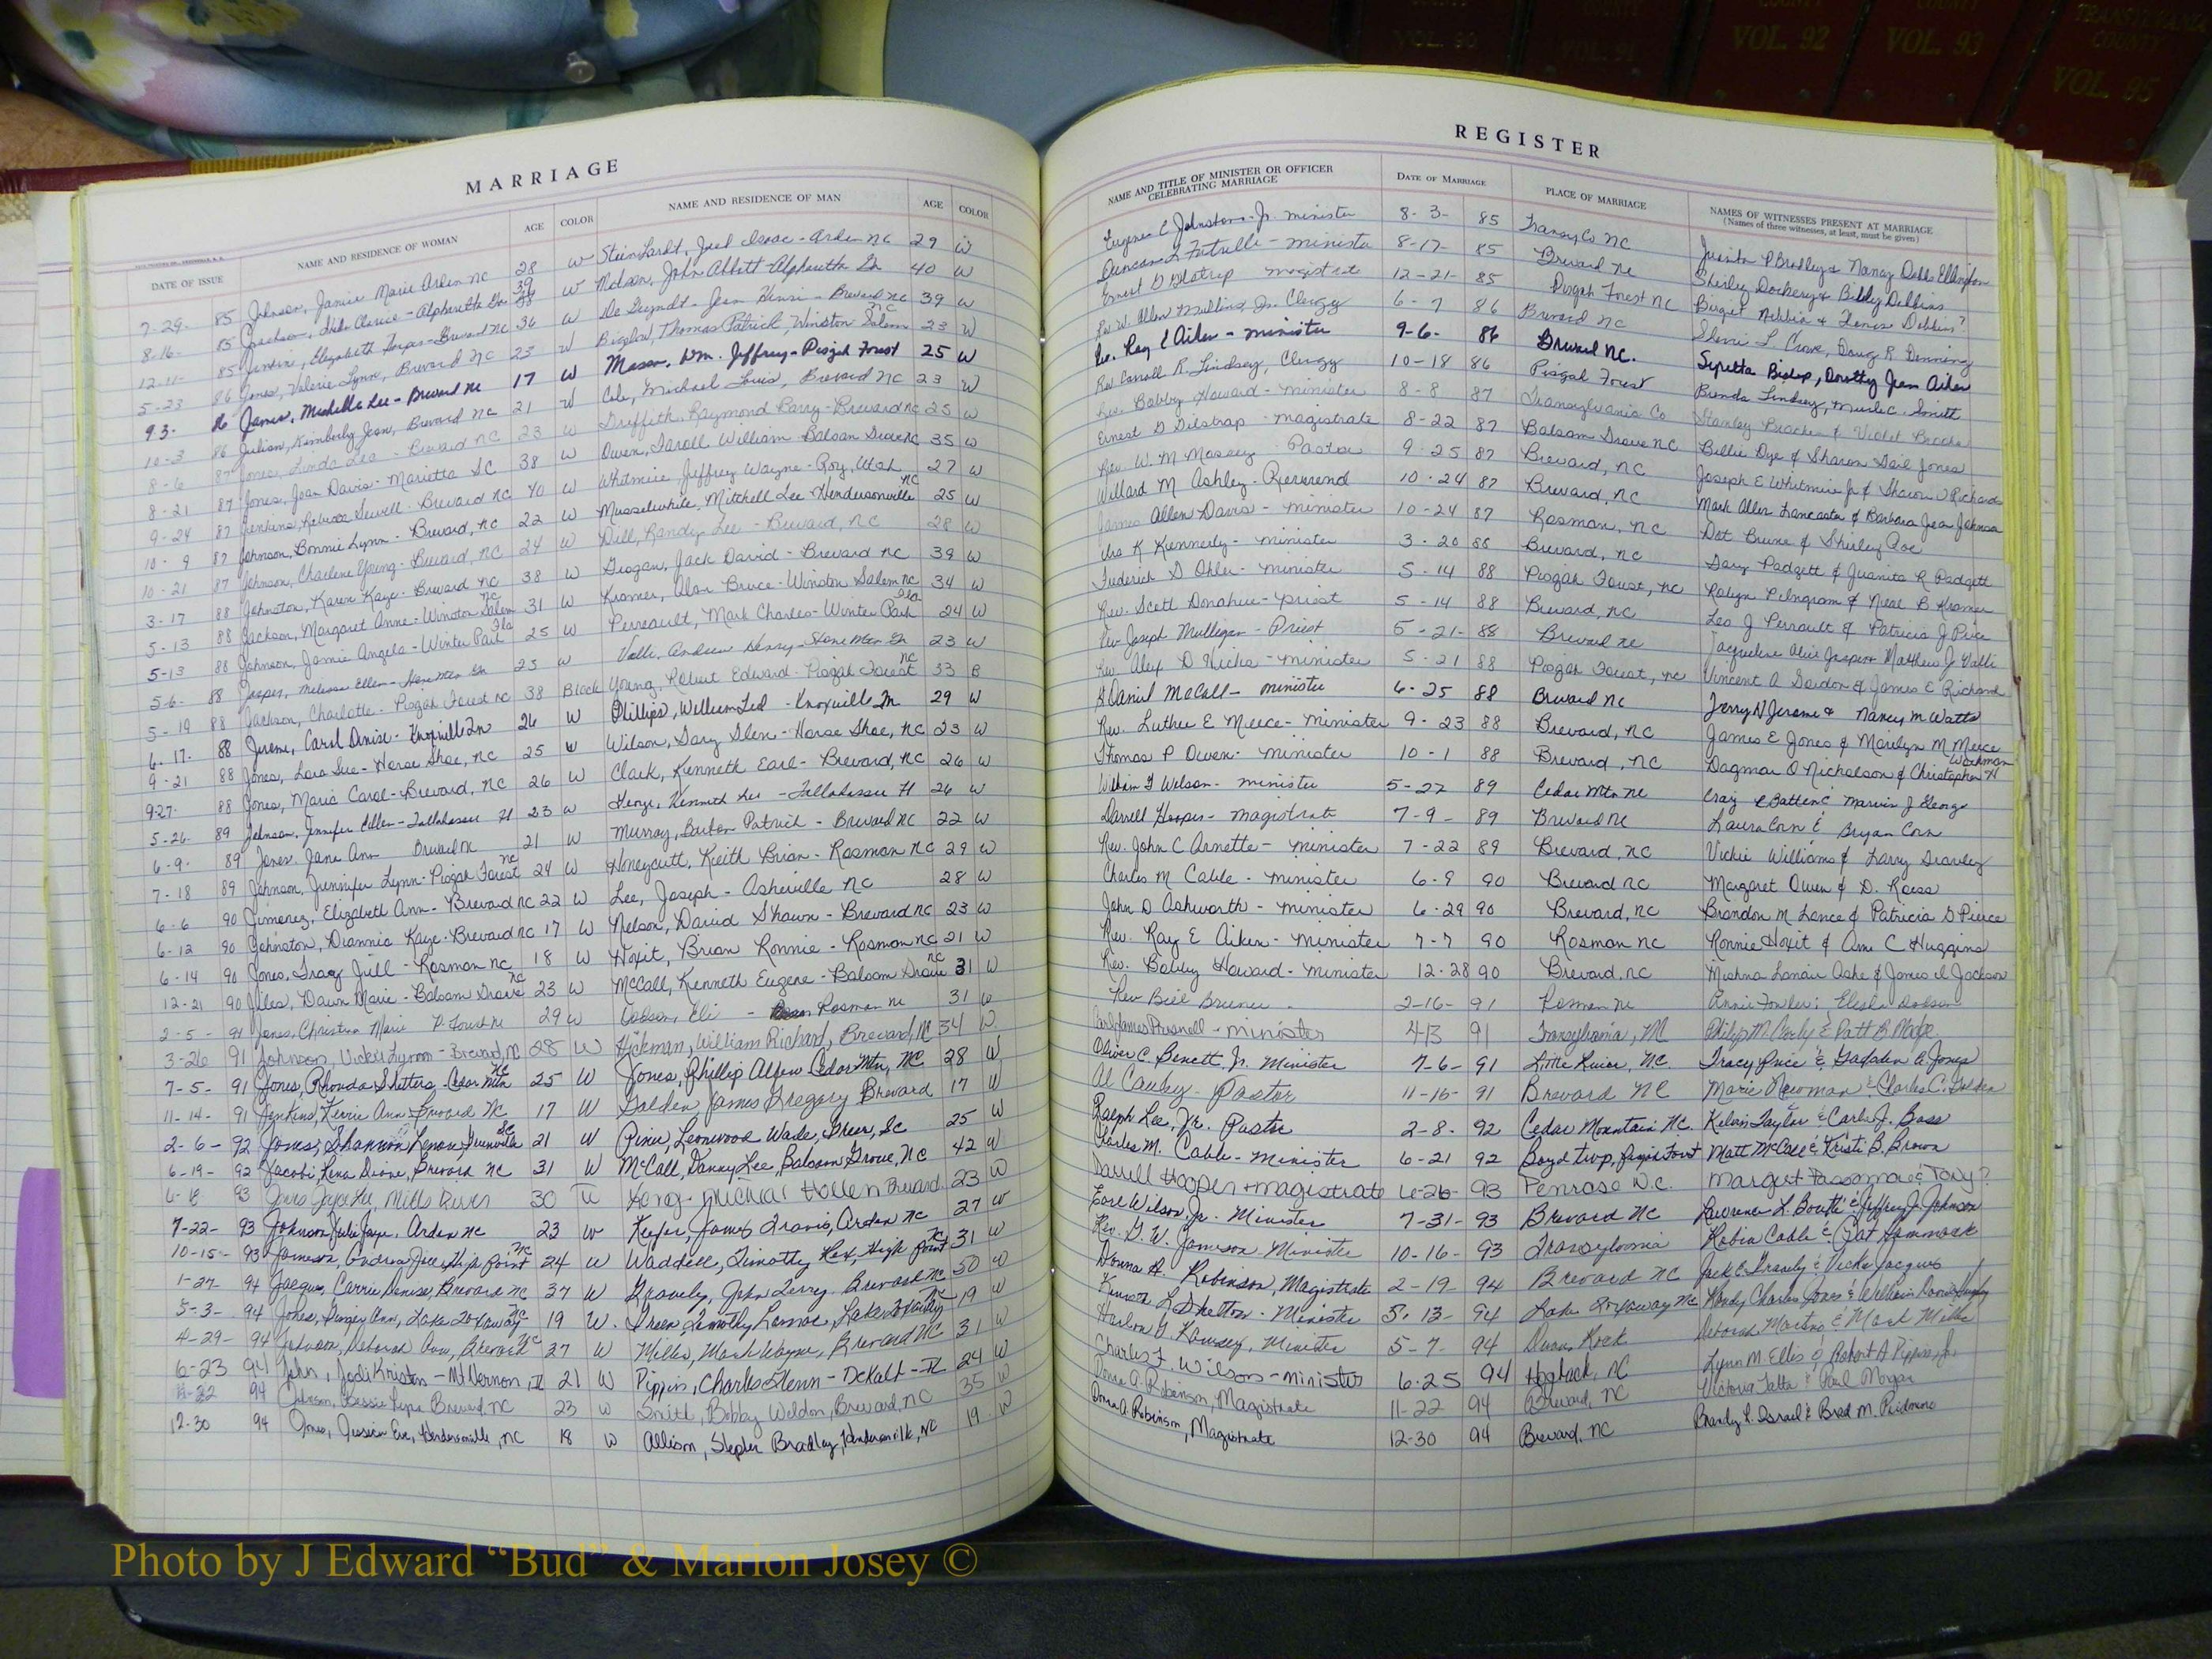 COUNTY
VOL. 90
VOL. 91
COUNTY
VOL. 92
COUNTY
VOL. 93
TRANSYLVANIA
COUNTY
VOL. 95
MARRIAGE
DATE OF ISSUE NAME AND RESIDENCE OF WOMAN AGE COLOR NAME AND RESIDENCE OF MAN AGE COLOR
7-29- 85 Johnson, Janie Marie Arden NC 28 W Steinhardt, Joel Isaac - Arden NC 29 W
8-16- 85 Jackson, Clarice - Alpharetta Ga W Nelson, John Abbitt - Alpharetta Ga 40 W
12-11- 85 Jenkins, Elizabeth - Brevard NC 36 W - Jean Henri - Brevard NC 39 W
5-23 86 Jones, Valerie Lynne, Brevard NC 23 W Bigelow, Thomas Patrick, Winston Salem NC 23 W
9-3- 86 James, Michelle Lee - Brevard NC 17 W Mason, Wm. Jeffrey - Pisgah Forest 25 W
10-3 86 Julian, Kimberly Jean, Brevard NC 21 W Cole, Michael Louis, Brevard NC 23 W
8-6 87 Jones, Linda Lea - Brevard NC 23 W Griffith, Raymond Barry - Brevard NC 25 W
8-21 87 Jones, Joan Davis - Marietta SC 38 W Owen, William Balsam Grove NC 35 W
9-24 87 Jenkins, Rebecca Sewell - Brevard NC 40 W Whitmire, Jeffrey Wayne - Roy, Utah 27 W
10-9 87 Johnson, Bonnie Lynn - Brevard, NC 22 W Musselwhite, Mitchell Lee - Hendersonville NC 25 W
10-21 87 Johnson, Charlene Young - Brevard, NC 24 W Dill, Randy Lee - Brevard, NC 28 W
3-17 88 Johnston, Karen Kaye - Brevard NC 38 W Grogan, Jack David - Brevard NC 39 W
5-13 88 Jackson, Margaret Anne - Winston Salem NC 31 W Kramer, Alan Bruce - Winston Salem NC 34 W
5-13 88 Johnson, Jamie Angela - Winter Park Fla 25 W Perreault, Mark Charles - Winter Park Fla 24 W
5-6- 88 Jasper, Melissa Ellen - Stone Mtn Ga 23 W Valli, Andrew Henry - Stone Mtn Ga 23 W
5-19 88 Jackson, Charlotte - Pisgah Forest NC 38 Black Young, Robert Edward - Pisgah Forest NC 33 B
6-17- 88 Jerome, Carol Denise - Knoxville Tn 26 W Phillips, William Ted - Knoxville Tn 29 W
9-21 88 Jones, Lora Sue - Horse Shoe, NC 25 W Wilson, Gary Glen - Horse Shoe, NC 23 W
9-27- 88 Jones, Maria Carol - Brevard, NC 26 W Clark, Kenneth Earl - Brevard, NC 26 W
5-26- 89 Johnson, Jennifer Ellen - Tallahassee Fl 23 W George, Kenneth Lee - Tallahassee Fl 26 W
6-9- 89 Jones, Jane Ann Brevard NC 21 W Murray, Patrick - Brevard NC 22 W
7-18 89 Johnson, Jennifer Lynn - Pisgah Forest NC 24 W Honeycutt, Keith Brian - Rosman NC 29 W
6-6 90 Jimenez, Elizabeth Ann - Brevard NC 22 W Lee, Joseph - Asheville NC 28 W
6-12 90 Johnston, Diannia Kaye - Brevard NC 17 W Nelson, David Shawn - Brevard NC 23 W
6-14 90 Jones, Tracy Jill - Rosman NC 18 W Hoxit, Brian Ronnie - Rosman NC 21 W
12-21 90 Jiles, Dawn Marie - Balsam Grove NC 23 W McCall, Kenneth Eugene - Balsam Grove NC 31 W
2-5- 91 Jones, Christina Marie P. Forest NC 29 W Dodson, Eli - Rosman NC 31 W
3-26 91 Johnson, Vickie Lynn - Brevard, NC 28 W Hickman, William Richard, Brevard, NC 34 W
7-5- 91 Jones, Rhonda - Cedar Mtn NC 25 W Jones, Phillip Allen Cedar Mtn, NC 28 W
11-14- 91 Jenkins, Kerrie Ann - Brevard NC 17 W Golden James Gregory Brevard 17 W
2-6- 92 Jones, Shannon Lenore, Greenville SC 21 W Leonwood Wade, Greer, SC 25 W
6-19- 92 Jacobi, Diane, Brevard NC 31 W McCall, Danny Lee, Balsam Grove, NC 42 W
93 Mills River 30 W Michael Hollen Brevard 23 W
7-22- 93 Johnson Julie Jaye, Arden NC 23 W James Travis, Arden NC 27 W
10-15- 93 Jameson, Andrea Jill, High Point NC 24 W Waddell, Timothy Rex, High Point NC 31 W
1-27- 94 Jacques, Carrie Denise, Brevard NC 37 W Gravely, John Terry, Brevard NC 50 W
5-3- 94 Jones, Ginger Ann, Lake Toxaway NC 19 W. Green, Timothy, Lake Toxaway NC 19 W
4-29- 94 Johnson, Deborah Ann, Brevard NC 27 W Miller, Mark Wayne, Brevard NC 31 W
6-23 94 John, Jodi Kristen - Mt. Vernon, IL 21 W Pippin, Charles Glenn - DeKalb - IL 24 W
11-22 94 Bessie Brevard, NC 23 W Smith, Bobby Weldon, Brevard, NC 35 W
12-30 94 Jones, Jessica Eve, Hendersonville, NC 18 W Allison, Bradley, Hendersonville, NC 19 W
REGISTER
NAME AND TITLE OF MINISTER OR OFFICER CELEBRATING MARRIAGE DATE OF MARRIAGE PLACE OF MARRIAGE NAMES OF WITNESSES PRESENT AT MARRIAGE
(Names of three witnesses, at least, must be given)
Eugene C Johnston - Jr. minister 8-3- 85 Transy Co NC Juanita P Bradley & Nancy
Duncan L Futrelle - minister 8-17- 85 Brevard NC Shirley Dockery & Billy
Ernest D Gilstrap magistrate 12-21- 85 Pisgah Forest NC
W. Allen Mullinax, Jr. Clergy 6-7 86 Brevard NC L Crowe, Doug R
Rev. Ray E Aiken - minister 9-6- 86 Brevard NC. Bishop, Dorothy Jean Aiken
Rev Carroll R. Lindsey, Clergy 10-18 86 Pisgah Forest Brenda Lindsey, Smith
Rev. Bobby Howard - minister 8-8 87 Transylvania Co Stanley & Violet
Ernest D Gilstrap - magistrate 8-22 87 Balsam Grove NC Billie Dye & Sharon Gail Jones
Rev. W. M Massey - Pastor 9-25 87 Brevard, NC Joseph E Whitmire Jr & Sharon Richards
Willard M Ashley - Reverend 10-24 87 Brevard, NC Mark Allen Lancaster & Barbara Jean Johnson
James Allen Davis - minister 10-24 87 Rosman, NC Dot & Shirley
Ira K Kennerly - minister 3-20 88 Brevard, NC Gary Padgett & Juanita R Padgett
Frederick D Ohler - minister 5-14 88 Pisgah Forest, NC Robyn P Ingram & Neal B Kramer
Rev. Scott Donahue - priest 5-14 88 Brevard, NC Leo J Perrault & Patricia J
Rev Joseph Mulligan - Priest 5-21- 88 Brevard NC Jacqueline Jasper & Matthew J Valli
Rev. Alex D Hicks - minister 5-21 88 Pisgah Forest, NC Vincent A & James E Richard
H Daniel McCall - minister 6-25 88 Brevard NC Jerry N Jerome & Nancy M Watts
Rev. Luther E Meece - minister 9-23 88 Brevard, NC James E Jones & Marilyn M Meece
Thomas P Owen - minister 10-1 88 Brevard, NC Dagmar O Nicholson & Christopher N Workman
William F Wilson - minister 5-27 89 Cedar Mtn NC Craig & Marvin J George
Darrell Hooper - magistrate 7-9- 89 Brevard NC Laura Corn & Bryan Corn
Rev. John C Arnette - minister 7-22 89 Brevard, NC Vickie Williams & Larry
Charles M Cable - minister 6-9 90 Brevard NC Margaret Owen & D. Ross
John D Ashworth - minister 6-29 90 Brevard, NC Brandon M Lance & Patricia D Pierce
Rev. Ray E Aiken - minister 7-7 90 Rosman NC Ronnie Hoxit & Ann C Huggins
Rev. Bobby Howard - minister 12-28 90 Brevard, NC Mishna Lanair Ashe & James Jackson
Rev Bill Bruner 2-16- 91 Rosman NC Annie Fowler & Dodson
Carl James Presnell - minister 4/3 91 Transylvania, NC Philip M. & Patt B
Oliver C. Benett Jr. Minister 7-6- 91 Little River, NC. Tracy Price & Jones
Al Causby - Pastor 11-16- 91 Brevard NC Marie Newman & Charles C. Golden
Ralph Lee, Jr. Pastor 2-8- 92 Cedar Mountain NC. Kelvin Taylor & Carla J. Bass
Charles M. Cable - Minister 6-21 92 Boyd twp, Pisgah Forest Matt McCall & Kristi B. Brown
Darrell Hooper + magistrate 6-26- 93 Penrose N.C. Margret & Tony?
Earl Wilson, Jr. Minister 7-31- 93 Brevard NC Lawrence L. & Jeffrey J. Johnson
Rev. G. W. Jameson, Minister 10-16- 93 Transylvania Robin Cable & Pat Hammock
Donna A. Robinson, Magistrate 2-19- 94 Brevard NC Jack C. Gravely & Vickie Jacques
Kenneth L Shelton - Minister 5-13- 94 Lake Toxaway NC Randy Charles Jones & William
Harlon Ramsey, Minister 5-7- 94 Rock Deborah Martin & Mark Miller
Charles F. Wilson - minister 6-25 94 Hogback, NC Lynn M Ellis & Robert A Pippin, Jr.
Donna A. Robinson, Magistrate 11-22 94 Brevard, NC Victoria & Paul Morgan
Donna A Robinson, Magistrate 12-30 94 Brevard, NC Brandy L. Israel & Brad M. Pridmore
Photo by J Edward “Bud” & Marion Josey ©